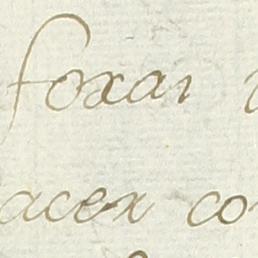 foxai
acex co